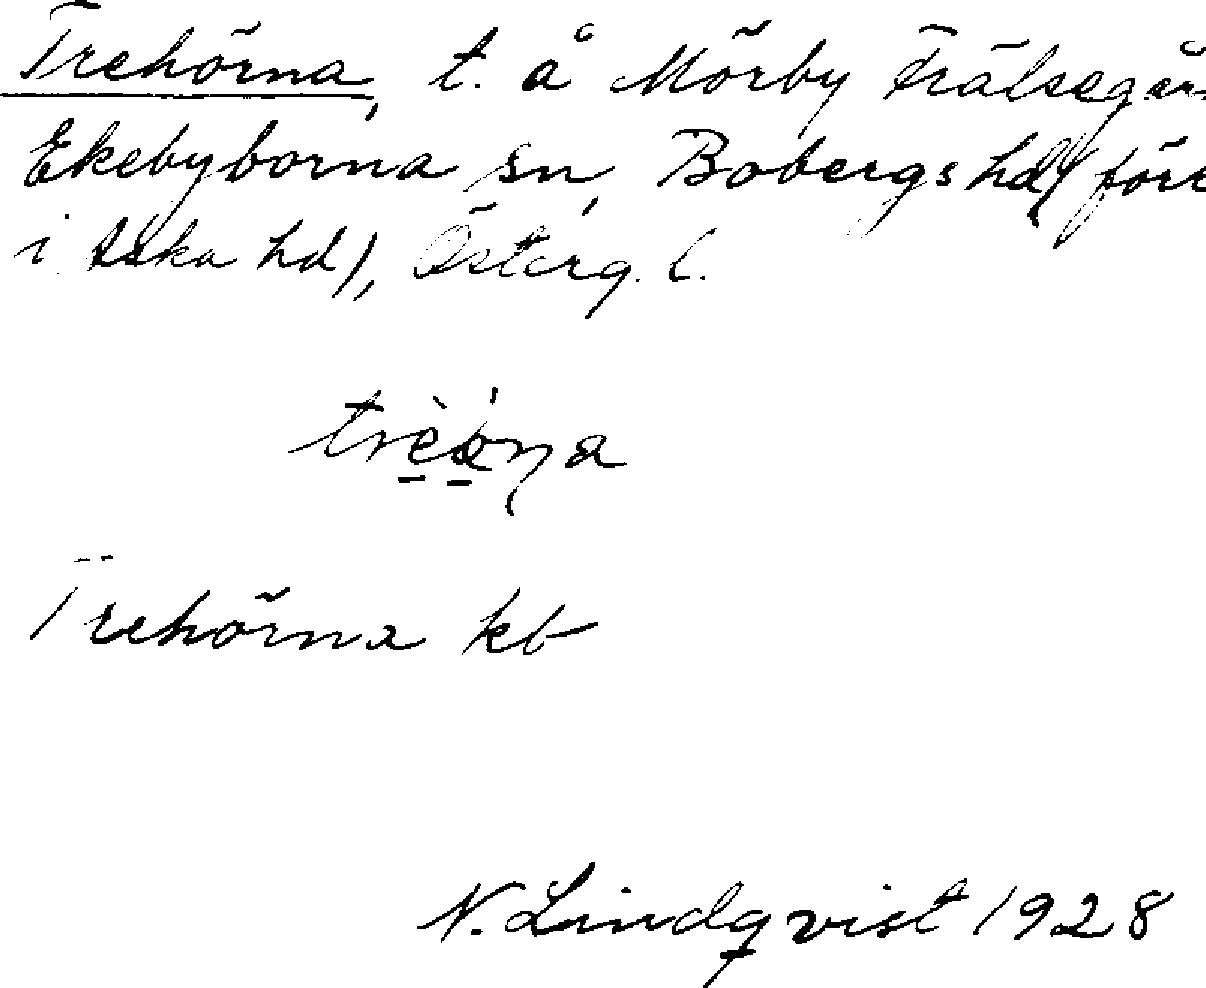 Trehörna, t. å Mörby Frälsegår
Ekebyborna sn, Bobergs hd (förr
i Aska hd), Österg. l.
Trehörna kb
N. Lindqvist 1928